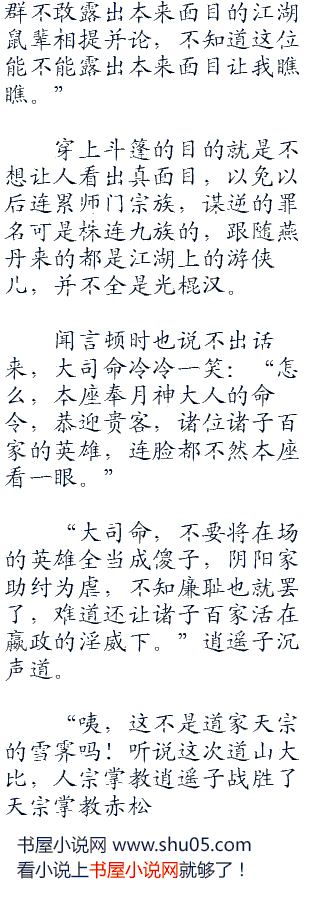 群不敢露出本来面目的江湖
鼠辈相提并论，不知道这位
能不能露出本来面目让我瞧
瞧。”
穿上斗篷的目的就是不
想让人看出真面目，以免以
后连累师门宗族，谋逆的罪
名可是株连九族的，跟随燕
丹来的都是江湖上的游侠
儿，并不全是光棍汉。
闻言顿时也说不出话
来，大司命冷冷一笑：“怎
么，本座奉月神大人的命
令，恭迎贵客，诸位诸子百
家的英雄，连脸都不然本座
看一眼。”
“大司命，不要将在场
的英雄全当成傻子，阴阳家
助纣为虐，不知廉耻也就罢
了，难道还让诸子百家活在
嬴政的淫威下。”逍遥子沉
声道。
“咦，这不是道家天宗
的雪霁吗！听说这次道山大
比，人宗掌教逍遥子战胜了
天宗掌教赤松
书屋小说网 www.shu05.com
看小说上书屋小说网就够了！